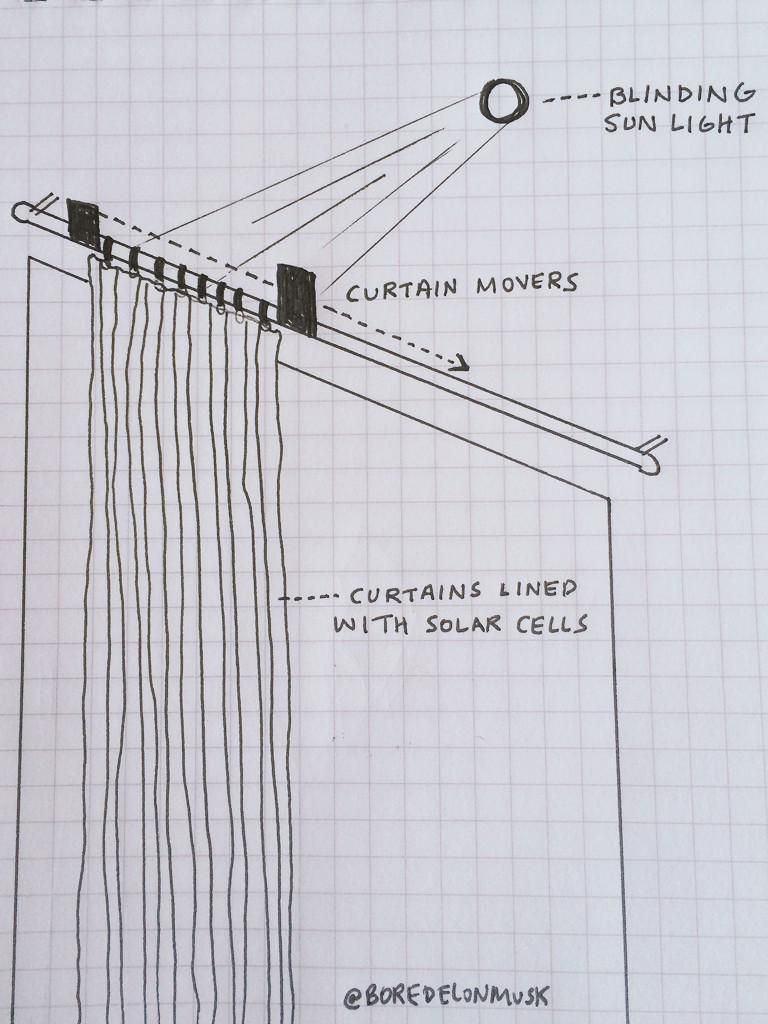 BLINDING
SUN LIGHT
CURTAIN MOVERS
CURTAINS LINED
WITH SOLAR CELLS
@BOREDELONMUSK